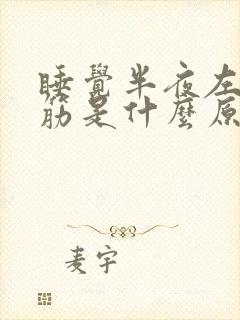 睡覺半夜左
筋是什麼原
麦宇